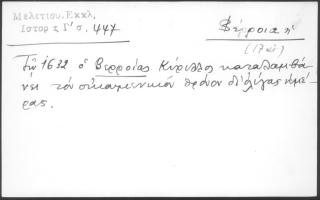 Μελετίου.Εκκλ.
Ιστορ τ Γ' σ. 447
Βέρροια η
(17 αἰ)
Τῷ 1632 ὁ Βερροίας Κύριλλος καταλαμβά
νει τὸν οἰκουμενικὸν θρόνον δι' ὀλίγας ἡμέ
ρας.